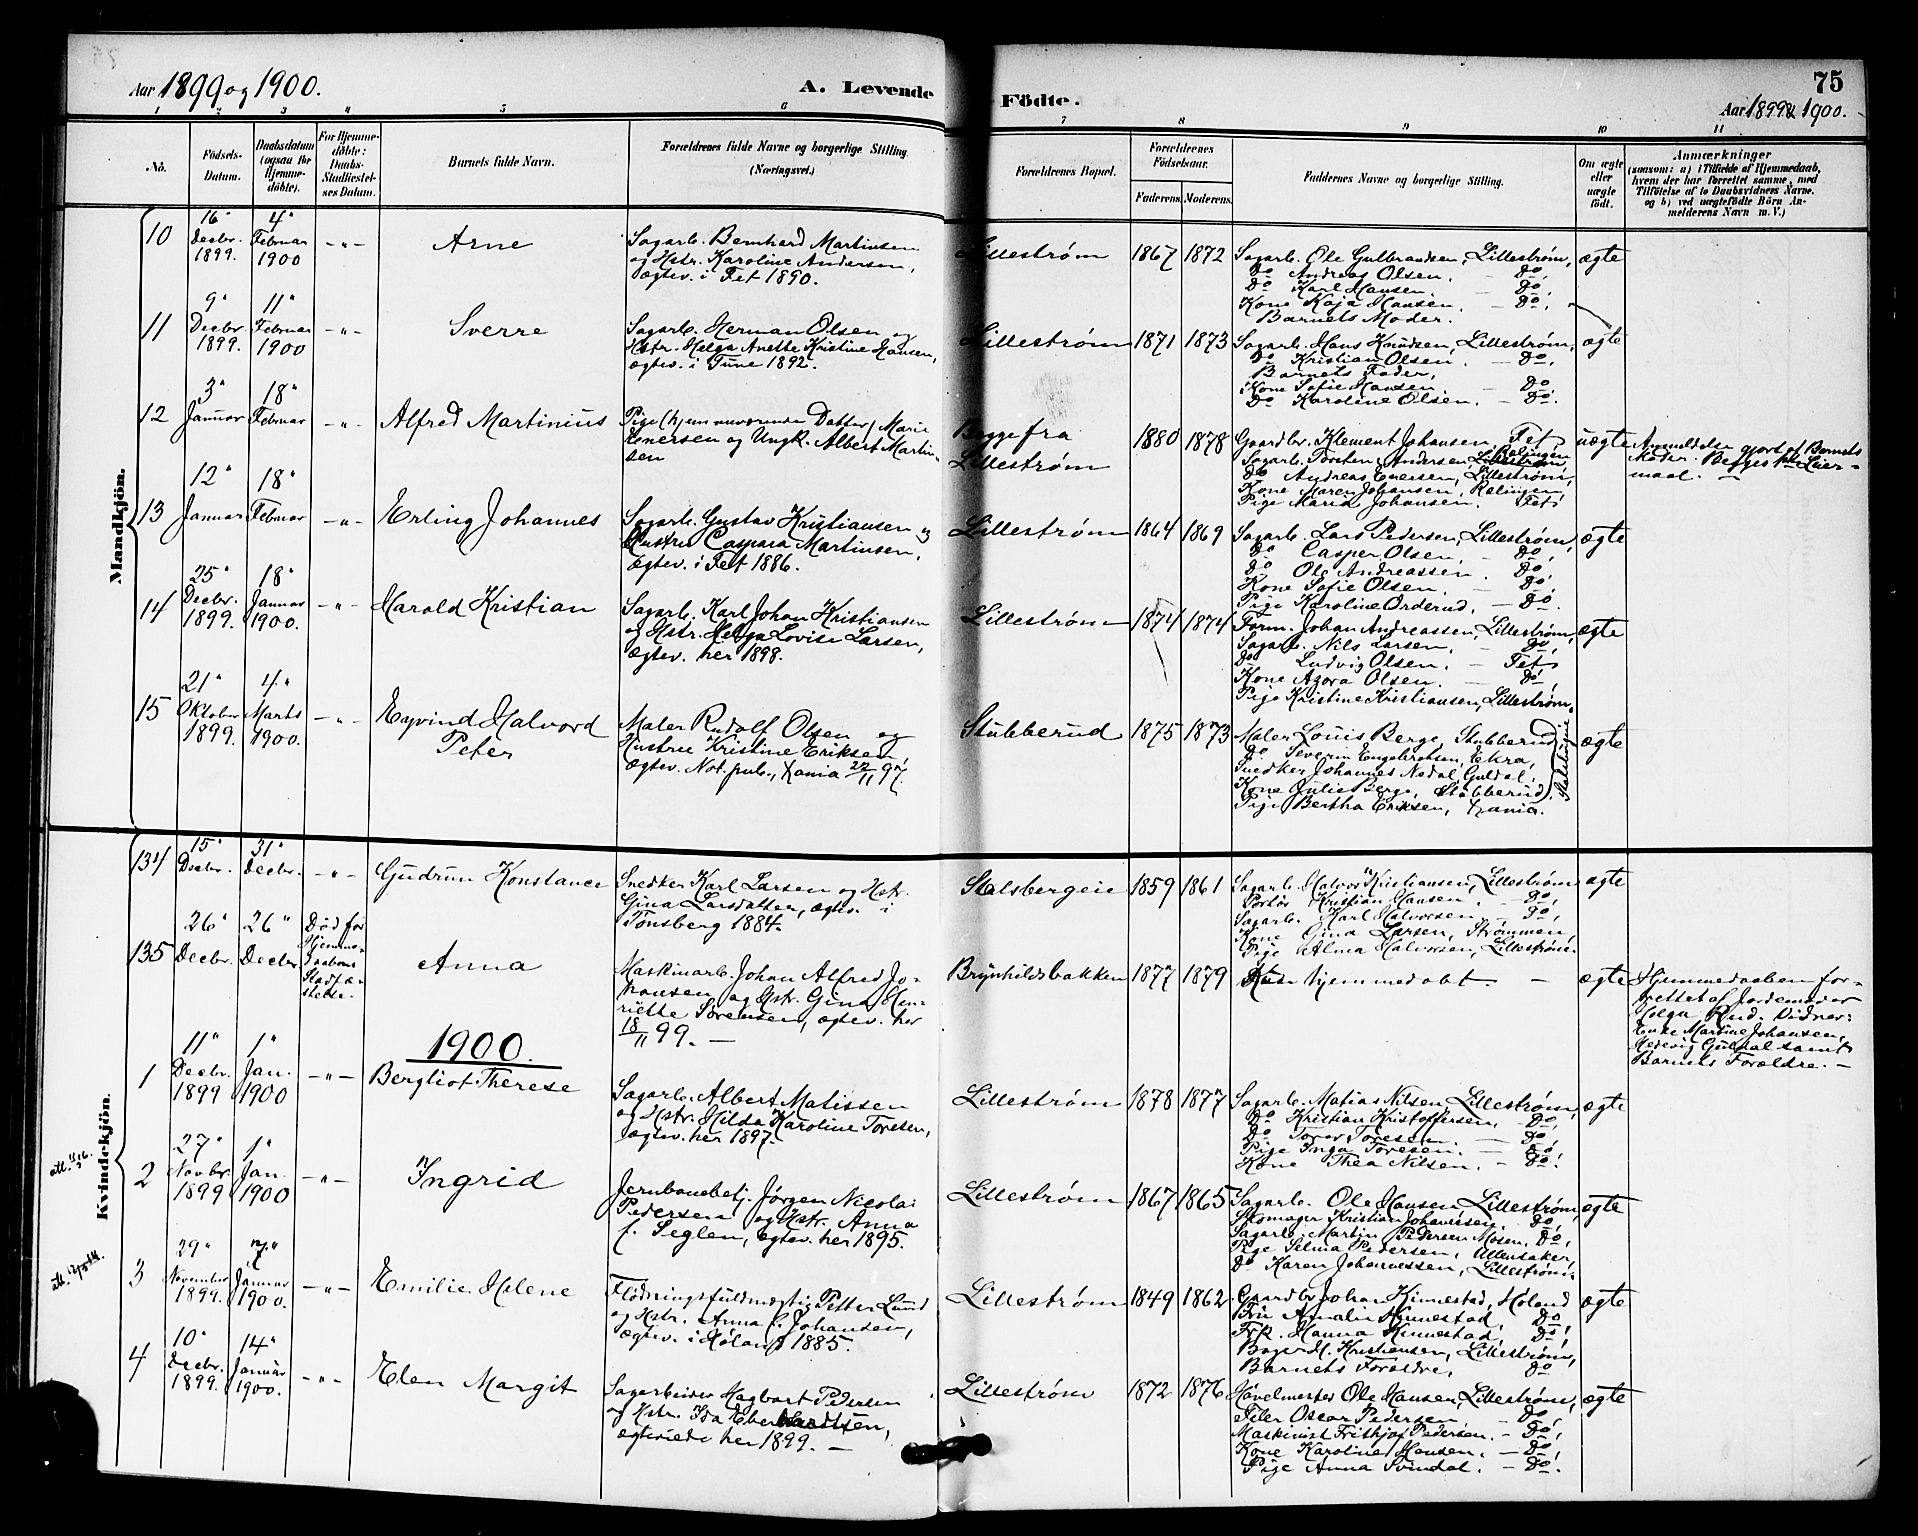 Aar 1899 og 1900.
A. Levende Födte.
75
Aar 1899 & 1900.
1 2 3 4 5 6 7 8 9 10 11
No.
Födsels-Datum.
Daabsdatum (ogsaa for Hjemme-döbte).
For Hjemme-döbte: Daabs-Stadfæstel-ses Datum.
Barnets fulde Navn.
Forældrenes fulde Navne og borgerlige Stilling.
(Næringsvei.)
Forældrenes Bopæl.
Forældrenes Födselsaar.
Faderens. Moderens.
Faddernes Navne og borgerlige Stilling.
Om ægte eller uægte födt.
Anmærkninger
(saasom: a) i Tilfælde af Hjemmedaab,
hvem der har forrettet samme, med
Tilföielse af to Daabsvidners Navne.
og b) ved uægtefödte Börn An-
melderens Navn m. V.)
Mandkjön.
10
16" Decbr. 1899.
4" Februar 1900
Arne
Sagarb. Bernhard Martinsen
og Hstr. Karoline Andersen,
ægtev. i Fet 1890.
Lillestrøm
1867 1872
Sagarb. Ole Gulbrandsen, Lillestrøm,
Do Andreas Olsen. — Do,
Do Karl Hansen. — Do,
Kone Kaja Hansen. — Do,
Barnets Moder.
ægte
11
9" Decbr. 1899.
11" Februar 1900
Sverre
Sagarb. Herman Olsen og
Hstr. Helga Anette Kristine Hansen,
ægtev. i Tune 1892.
Lillestrøm
1871 1873
Sagarb. Hans Knudsen, Lillestrøm,
Do Kristian Olsen. — Do,
Barnets Fader,
Kone Sofie Hansen. — Do,
Do Karoline Olsen. — Do.
ægte
12
3" Januar
18" Februar
Alfred Martinius
Pige (hjemmeværende Datter) Marie
Enersen og Ungk. Albert Martin-
sen
Begge fra
Lillestrøm
1880 1878
Gaardbr. Klement Johansen, Fet,
Sagarb. Torsten Andersen, Rælingen
Do Andreas Enersen, Lillestrøm,
Kone Maren Johansen, Rælingen,
Pige Maria Johansen. Fet.
uægte
Anmeldelse gjort af Barnets
Moder. Begges 1ste Leier-
maal. —
13
12" Januar
18" Februar
Erling Johannes
Sagarb. Gustav Kristiansen og
Hustru Caspara Martinsen,
ægtev. i Fet 1886.
Lillestrøm
1864 1869
Sagarb. Lars Pedersen, Lillestrøm,
Do Casper Olsen — Do,
Do Ole Andreassen. Do,
Kone Sofie Olsen. — Do,
Pige Karoline Orderud. — Do.
ægte
14
25" Decbr. 1899.
18" Januar 1900.
Harald Kristian
Sagarb. Karl Johan Kristiansen
og Hstr. Helga Lovise Larsen,
ægtev. her 1898.
Lillestrøm
1874 1874
Form. Johan Andreassen, Lillestrøm,
Sagarb. Nils Larsen, — Do,
Do Ludvig Olsen. — Fet,
Kone Agora Olsen. — Do,
Pige Kristine Kristiansen, Lillestrøm.
ægte
15
21" Oktober 1899.
4" Marts 1900.
Eyvind Halvord
Peter
Maler Rudolf Olsen og
Hustru Kristine Eriksen,
ægtev. Not. pub., Xania 22/11 97.
Stubberud
1875 1873
Maler Louis Berge, Stubberud
Do Severin Engebretsen, Ekra,
Snedker Johannes Nedal, Guldal,
Kone Julie Berge, Stubberud,
Pige Bertha Eriksen, Xania.
ægte
Kvindekjön.
134
15" Decbr.
31" Decbr.
Gudrun Konstance
Snedker Karl Larsen og Hstr.
Gina Larsdatter, ægtev. i
Tønsberg 1884.
Stalsbergeie
1859 1861
Sagarb. Halvor Kristiansen, Lillestrøm
Portør Kristian Hansen. — Do,
Sagarb. Karl Halvorsen. — Do,
Kone Gina Larsen, Strømmen,
Pige Alma Halvorsen, Lillestrøm.
ægte
135
26" Decbr.
26" Decbr
Død før Hjemme-daabens Stadfæ-stelse.
Anna
Maskinarb. Johan Alfred Jo-
hansen og Hstr. Gina Hen-
riette Sørensen, ægtev. her
18/11 99. —
Brynhildsbakken
1877 1879
Kun hjemmedøbt —
ægte
Hjemmedaaben for-
rettet af Jordemoder
Helga Rud. Vidner:
Enke Martine Johansen,
Hedevig Guldal samt
Barnets Forældre. —
1900.
1
11" Decbr. 1899
1" Jan. 1900
Bergliot Therese
Sagarb. Albert Matissen
og Hstr. Hilda Karoline Toresen,
ægtev. her 1897.
Lillestrøm
1878 1877
Sagarb. Matias Nilsen, Lillestrøm,
Do Kristian Kristoffersen, — Do,
Do Torer Toresen. — Do,
Pige Inga Toresen. — Do,
Kone Thea Nilsen. — Do.
ægte
2
27" Novbr. 1899
1" Jan. 1900
Ingrid
Jernbanebetj. Jørgen Nicolai
Pedersen og Hstr. Anna
f. Seglen, ægtev. her 1895.
Lillestrøm
1867 1865
Sagarb. Ole Hansen, Lillestrøm,
Skomager Kristian Johannesen. Do,
Sagarb. Martin Pedersen Mosen, Do,
Pige Selma Pedersen, Ullensaker,
Do Karen Johannessen, Lillestrøm.
ægte
3
29" November 1899.
7" Januar 1900.
Emilie Helene
Flødningsfuldmægtig Petter Lund
og Hstr. Anna f. Johansen,
ægtev. i Høland 1885.
Lillestrøm
1849 1862
Gaardbr. Johan Kinnestad, Høland
Fru Amalie Kinnestad, Do,
Frk. Hanna Kinnestad, Do,
Bager H. Kristiansen, Lillestrøm,
Barnets Forældre, Do
ægte
4
10" Decbr. 1899.
14" Januar 1900.
Elen Margit
Sagarbeider Hagbart Pedersen
og Hstr. Ida Eberhardtsen,
ægteviede her 1899. —
Lillestrøm
1872 1876
Høvelmester Ole Hansen, Lillestrøm,
Filer Oscar Pedersen — Do,
Maskinist Frithjof Pedersen. — Do,
Kone Karoline Hansen — Do,
Pige Anna Svindal. — Do.
ægte